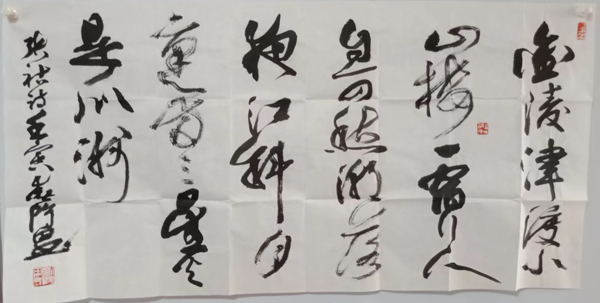 金陵津渡小
山楼一宿行人
自可愁潮落
夜江斜月
里两三星火
是瓜洲
张祜诗壬寅